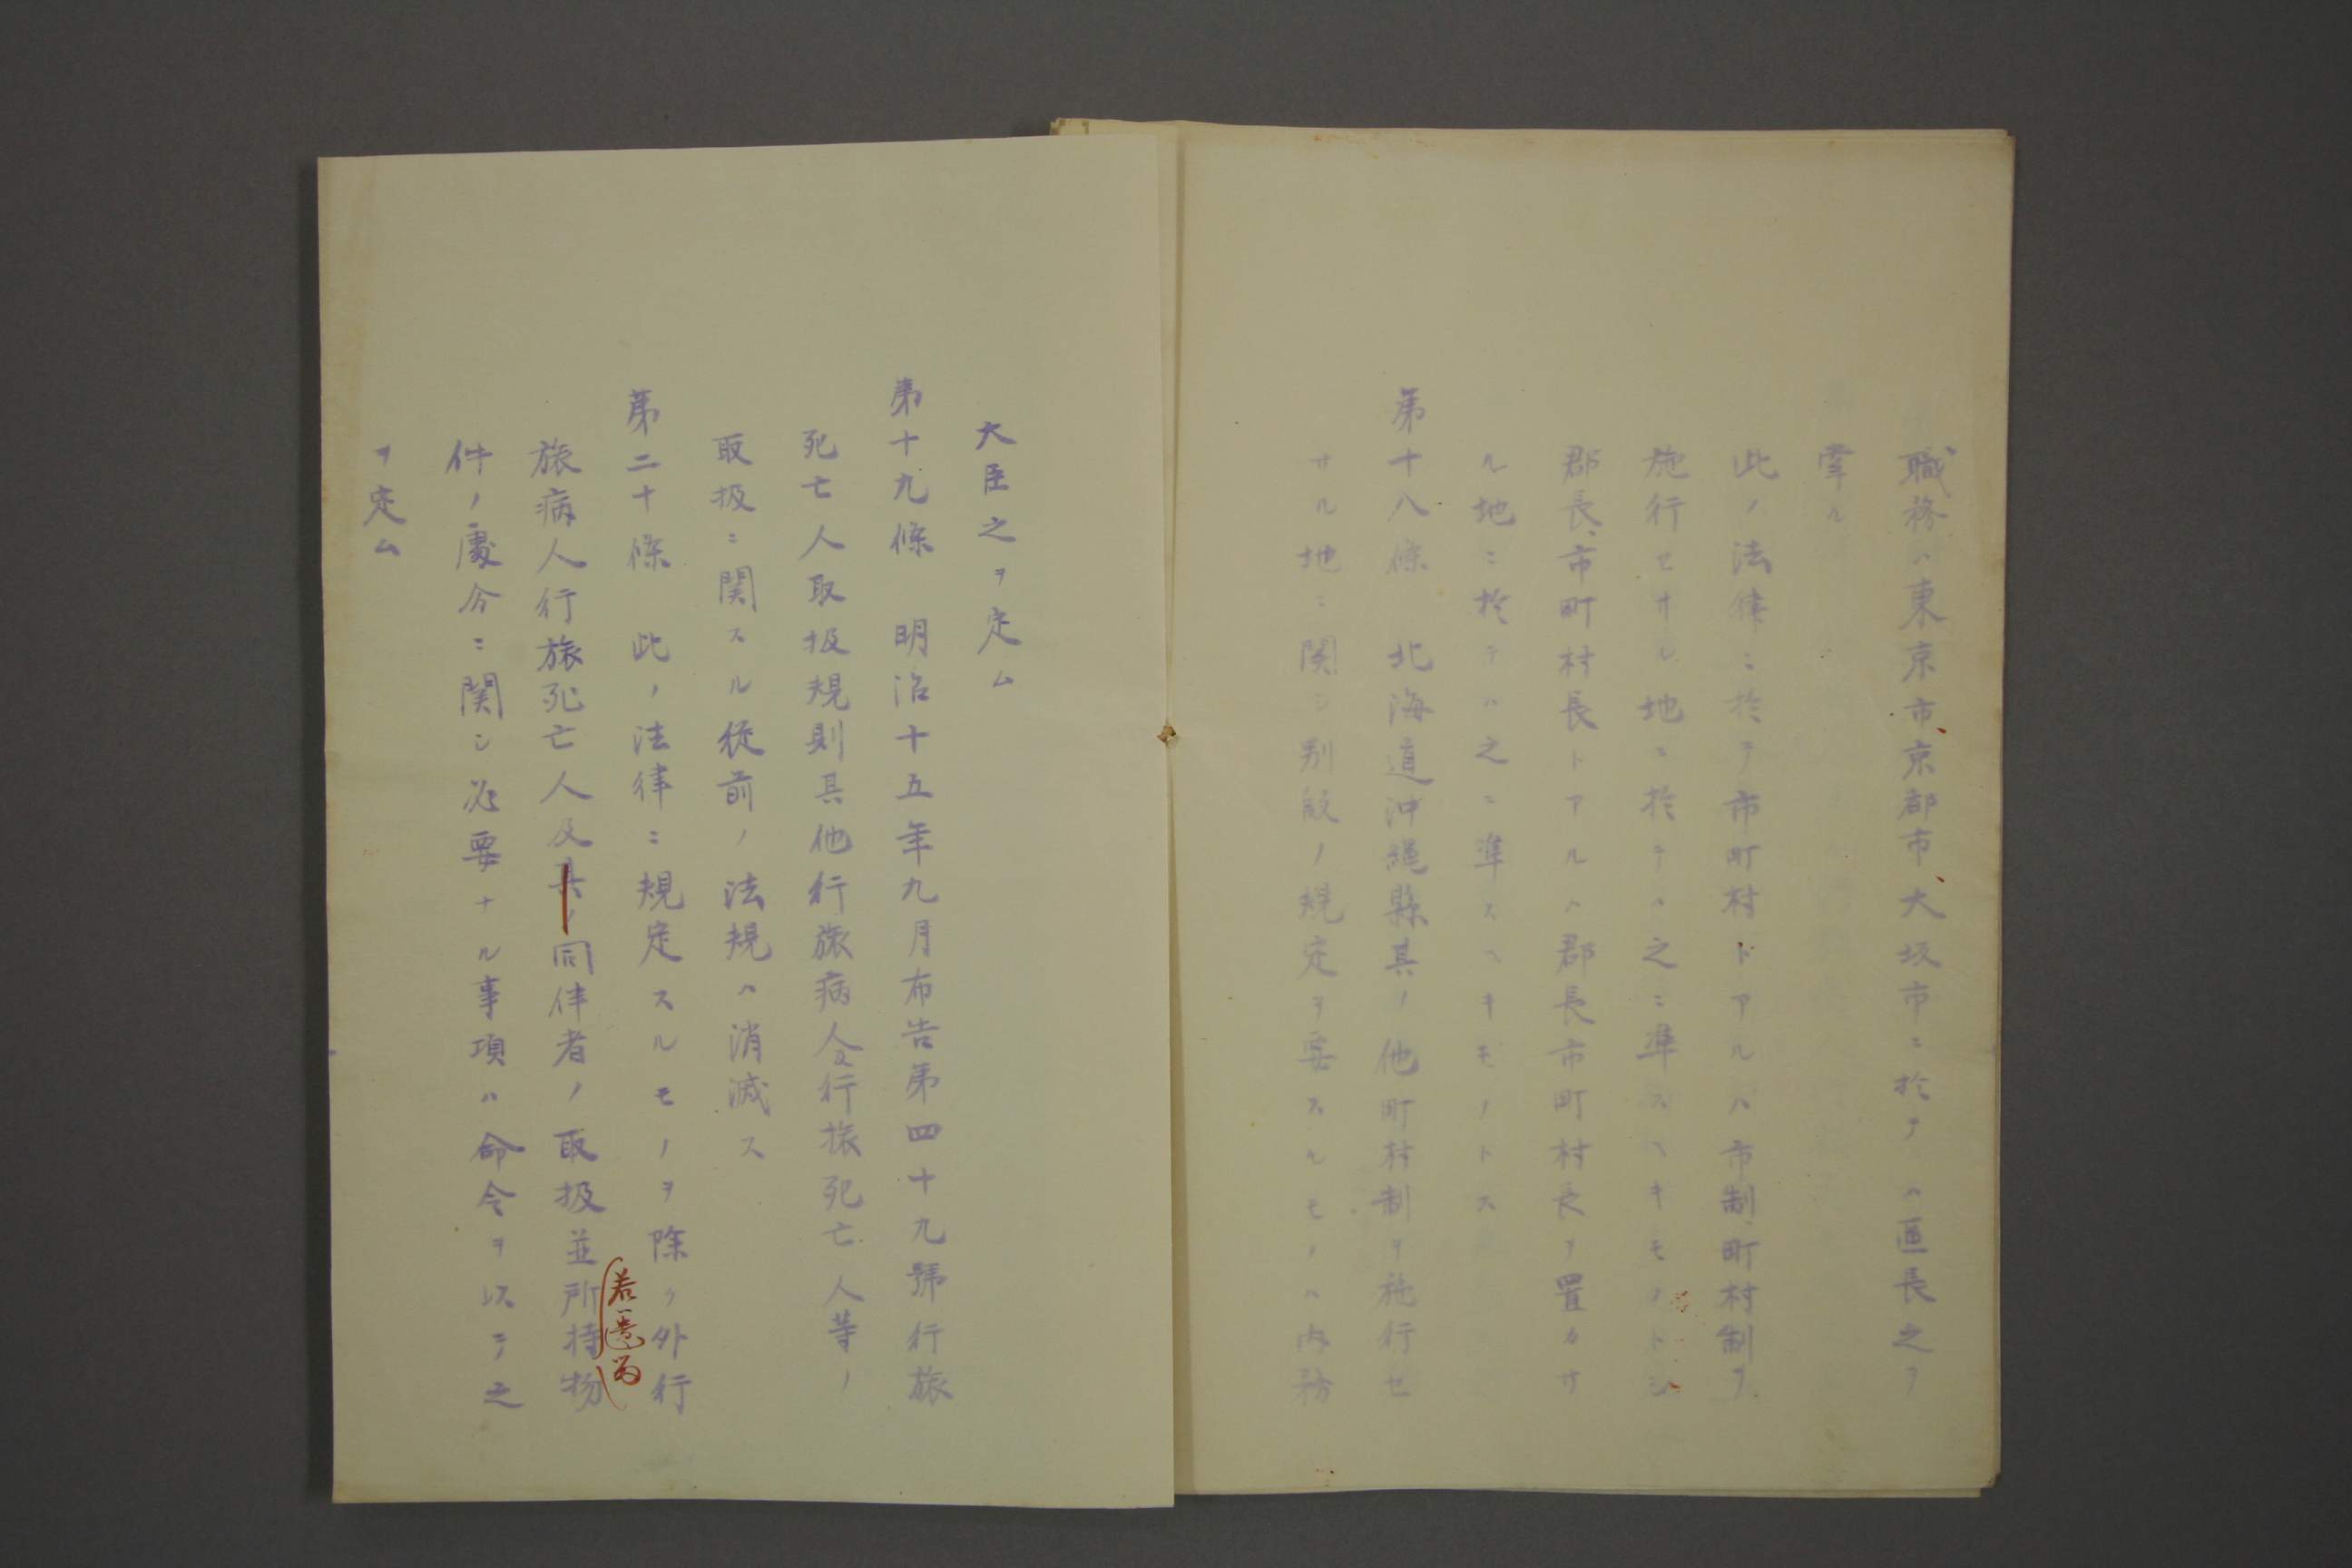 職務ハ東京市、京都市、大坂市ニ於テハ區長之ヲ
掌ル
此ノ法律ニ於テ市町村トアルハ市制、町村制ヲ
施行セサル地ニ於テハ之ニ準スヘキモノトシ
郡長、市町村長トアルハ郡長市町村長ヲ置カサ
ル地ニ於テハ之ニ準スヘキモノトス
第十八條　北海道沖繩縣其ノ他町村制ヲ施行セ
サル地ニ関シ別段ノ規定ヲ要スルモノハ内務
大臣之ヲ定ム
第十九條　明治十五年九月布告第四十九號行旅
死亡人取扱規則其他行旅病人及行旅死亡人等ノ
取扱ニ関スル従前ノ法規ハ消滅ス
第二十條　此ノ法律ニ規定スルモノヲ除ク外行
旅病人行旅死亡人及其ノ同伴者ノ取扱並所持物
件ノ處分ニ関シ必要ナル事項ハ命令ヲ以テ之
ヲ定ム